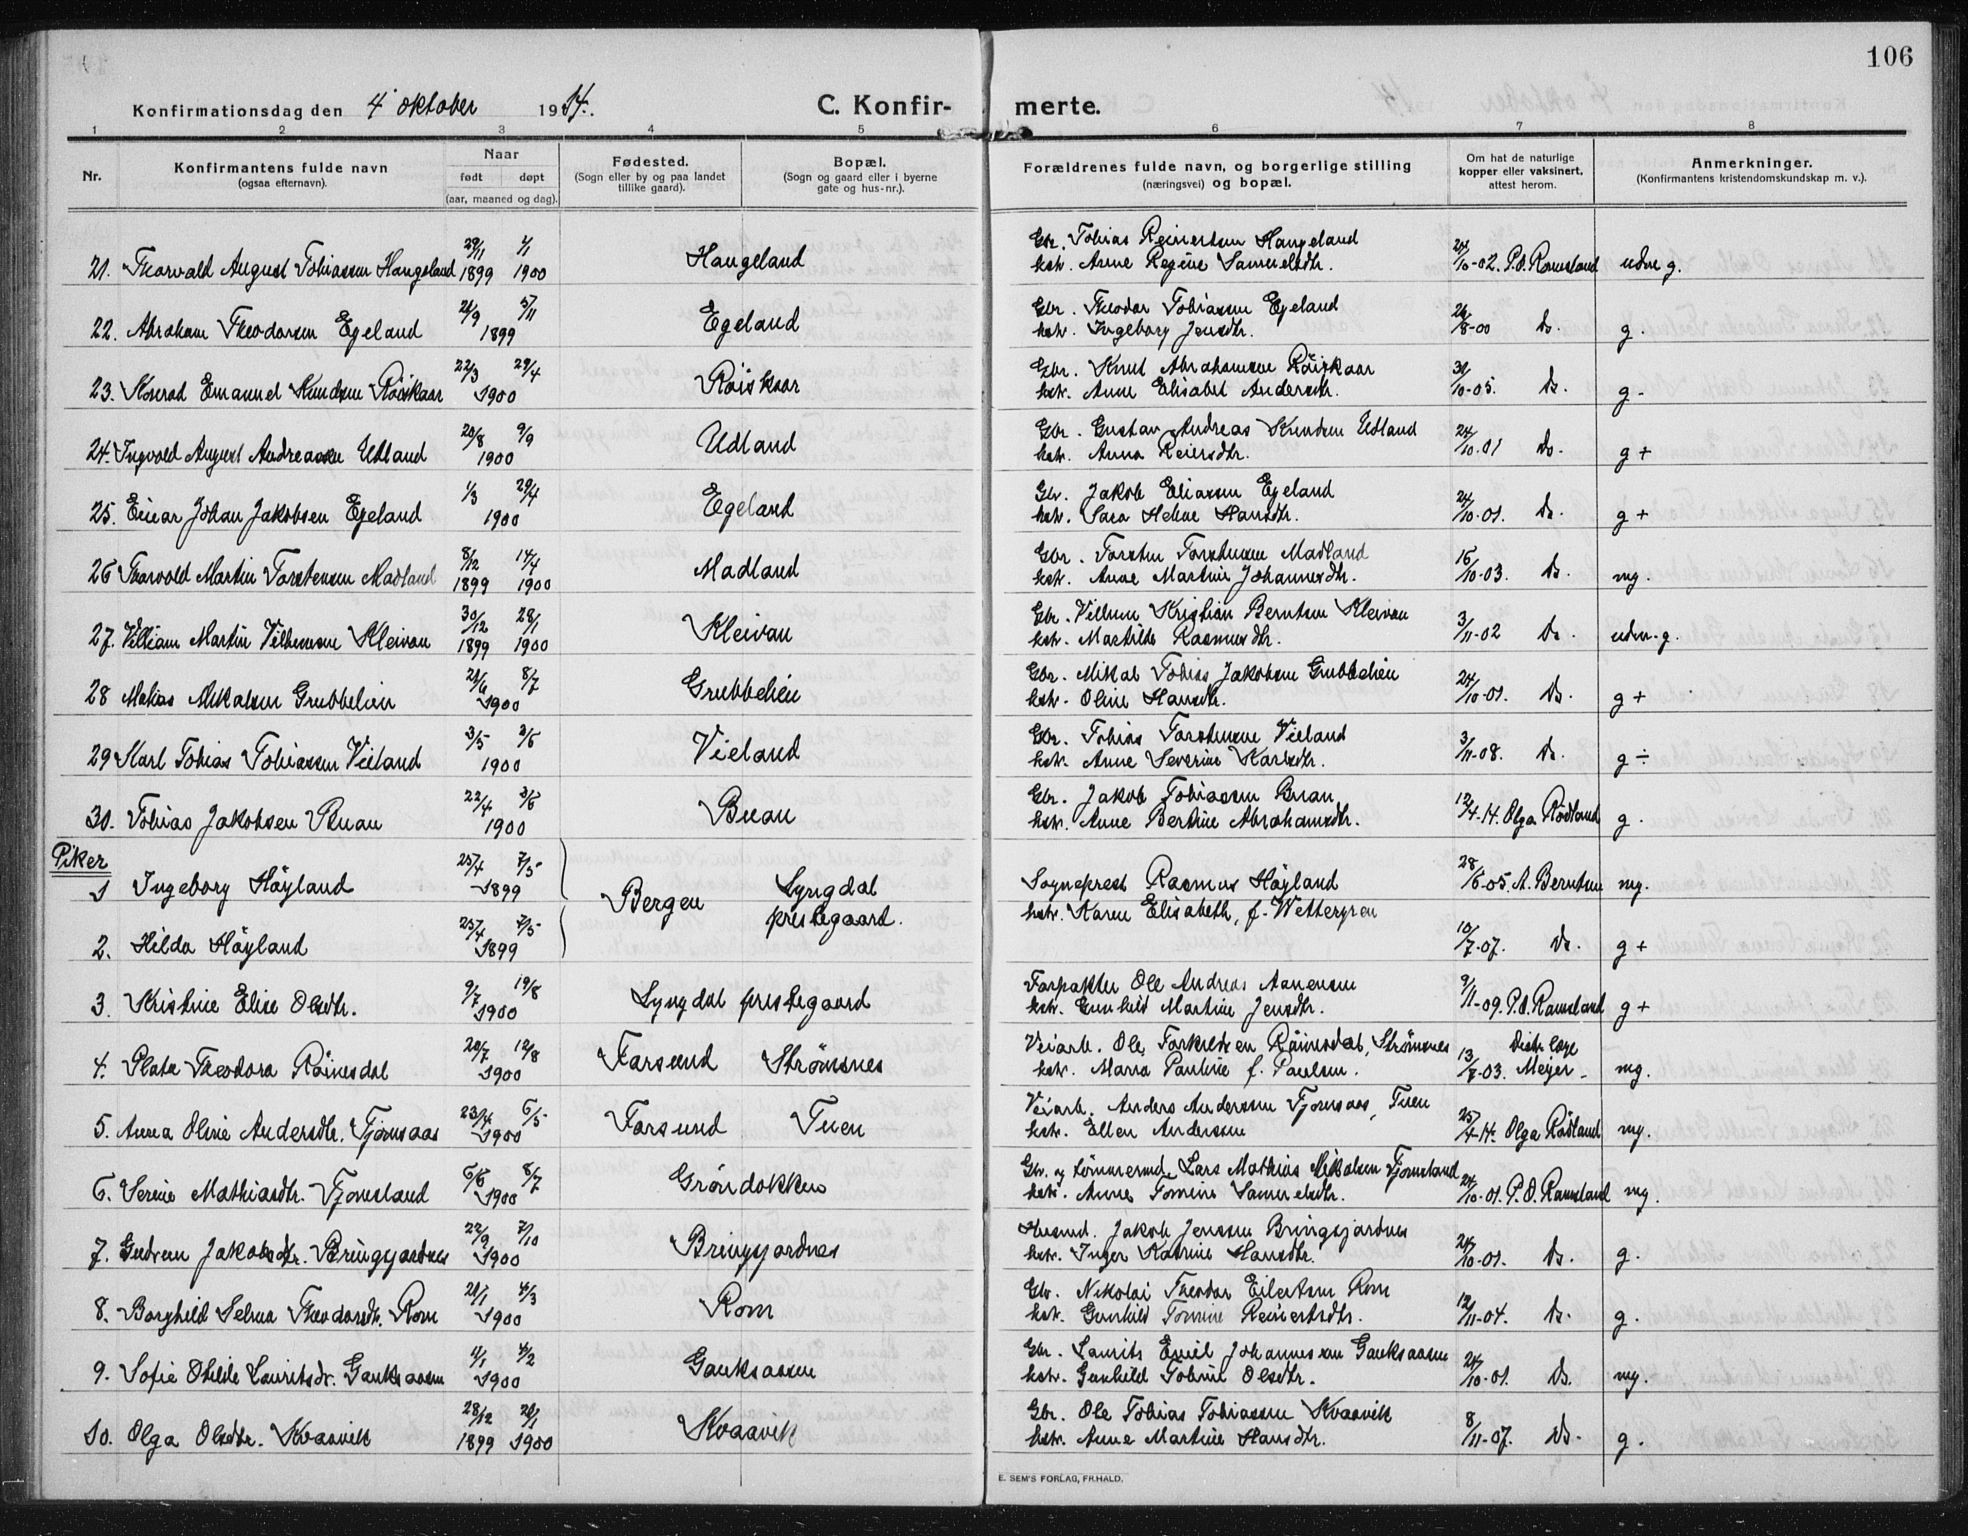 106
Konfirmationsdag den 4 oktober 1914. C. Konfir- merte.
1 2 3 4 5 6 7 8
Nr. Konfirmantens fulde navn (ogsaa efternavn). Naar født døpt (aar, maaned og dag). Fødested. (Sogn eller by og paa landet tillike gaard). Bopæl. (Sogn og gaard eller i byerne gate og hus-nr.). Forældrenes fulde navn, og borgerlige stilling (næringsvei) og bopæl. Om hat de naturlige kopper eller vaksinert, attest herom. Anmerkninger. (Konfirmantens kristendomskundskap m. v.).
29/11 4/1 Gbr. Tobias Reinertsen Haugeland
21. Thorvald August Tobiassen Haugeland 1899 1900 Haugeland hstr. Anne Regine Samuelsdtr. 24/10-02. P.O. Ramsland udm g.
Gbr. Theodor Tobiassen Egeland
22. Abraham Theodorsen Egeland 26/9 5/11 1899 Egeland hstr. Ingeborg Jensdtr. 26/8-00 Do. g.
Gbr. Knut Abrahamsen Röiskaar
23. Konrad Emanuel Knudsen Röiskaar 22/3 29/4 1900 Röiskaar hstr. Anne Elisabet Andersdtr. 30/10-05. Do. g-
Gbr. Gustav Andreas Knudsen Udland
24. Ingvald August Andreassen Udland 20/8 9/9 1900 Udland hstr. Anna Reiersdtr. 24/10-01 Do. g+
Gbr. Jakob Eliassen Egeland
25. Einar Johan Jakobsen Egeland 1/3 29/4 1900 Egeland hstr. Sara Helene Hansdtr. 24/10-01. Do. g+
Gbr. Torsten Torstensen Madland
26 Thorvald Martin Torstensen Madland 8/12 1899 14/4 1900 Madland hstr. Anne Martine Johannesdtr. 16/10-03. Do. mg.
Gbr. Vilhem Kristian Berntsen Kleivan
27. Villiam Martin Vilhemsen Kleivan 30/12 1899 28/1 1900 Kleivan hstr. Marthilde Rasmusdtr. 3/11-02 Do. udm. g.
Gbr. Mikal Tobias Jakobsen Grubbelien
28 Matias Mikalsen Grubbelien 21/6 8/7 1900 Grubbelien hstr. Oline Hansdtr. 24/10-01. Do. g+
Gbr. Tobias Torstensen Vieland
29 Karl Tobias Tobiassen Vieland 3/5 3/6 1900 Vieland hstr. Anne Severine Karlsdtr. 3/11-08. Do. g÷
Gbr. Jakob Tobiassen Buan
30. Tobias Jakobsen Buan 22/4 3/6 1900 Buan hstr. Anne Bertine Abrahamsdtr. 12/4-14. Olga Rødland g.
Piker
1 Ingeborg Höyland 25/4 7/5 1899 Bergen Lyngdal prestegaard. Sogneprest Rasmus Höyland 28/6-05. A. Berntsen mg.
hstr. Karen Elisabeth, f. Wettergren
2. Hilda Höyland 25/4 7/5 1899 10/7-07. Do. g+
Forpakter Ole Andreas Aanensen
3. Kristine Elise Olsdtr. 9/7 19/8 1900 Lyngdal prestegaard hstr. Gunhild Martine Jensdtr. 9/11-09. P.O. Ramsland g+
Veiarb. Ole Torkildsen Röinesdal, Strømsnes
4. Plata Theodora Röinesdal 20/7 12/8 1900 Farsund Strømsnes hstr. Maria Pauline f. Paulsen. 13/7-03. Distr. læge Meijer mg.
Veiarb. Anders Anderssen Fjomsaas, Tuen
5. Anna Oline Andersdtr. Fjomsaas 23/4 6/5 1900 Farsund Tuen hstr. Ellen Anderssen 25/4-14. Olga Rødland mg.
Gbr. og tømmermd. Lars Mathias Mikalsen Fjomsland
6. Serine Mathiasdtr. Fjomsland 6/6 8/7 1900 Gröndokken hstr. Anne Tomine Samuelsdtr. 24/10-01. P.O. Ramsland mg.
Husmd. Jakob Jenssen Bringsjordnes
7. Gudrun Jakobsdtr. Bringsjordnes 22/9 7/10 1900 Bringsjordnes hstr. Inger Katrine Hansdtr. 24/10-01. Do. g.
Gbr. Nikolai Theodor Eilertsen Rom
8. Borghild Selma Theodorsdtr. Rom 21/1 4/3 1900 Rom hstr. Gunhild Tomine Reinertsdtr. 12/11-04. Do. g.
Gbr. Laurits Emil Johannessen Gauksaasen
9. Sofie Otilde Lauritsdr. Gauksaasen 4/1 4/2 1900 Gauksaasen hstr. Gunhild Tobine Olsdtr. 24/10-01. Do. mg.
Gbr. Ole Tobias Tobiassen Kvaavik
10. Olga Olsdtr. Kvaavik 28/12 1899 20/1 1900 Kvaavik hstr. Anne Martine Hansdtr. 8/11-07. Do. g.
E. SEM'S FORLAG, FR.HALD.